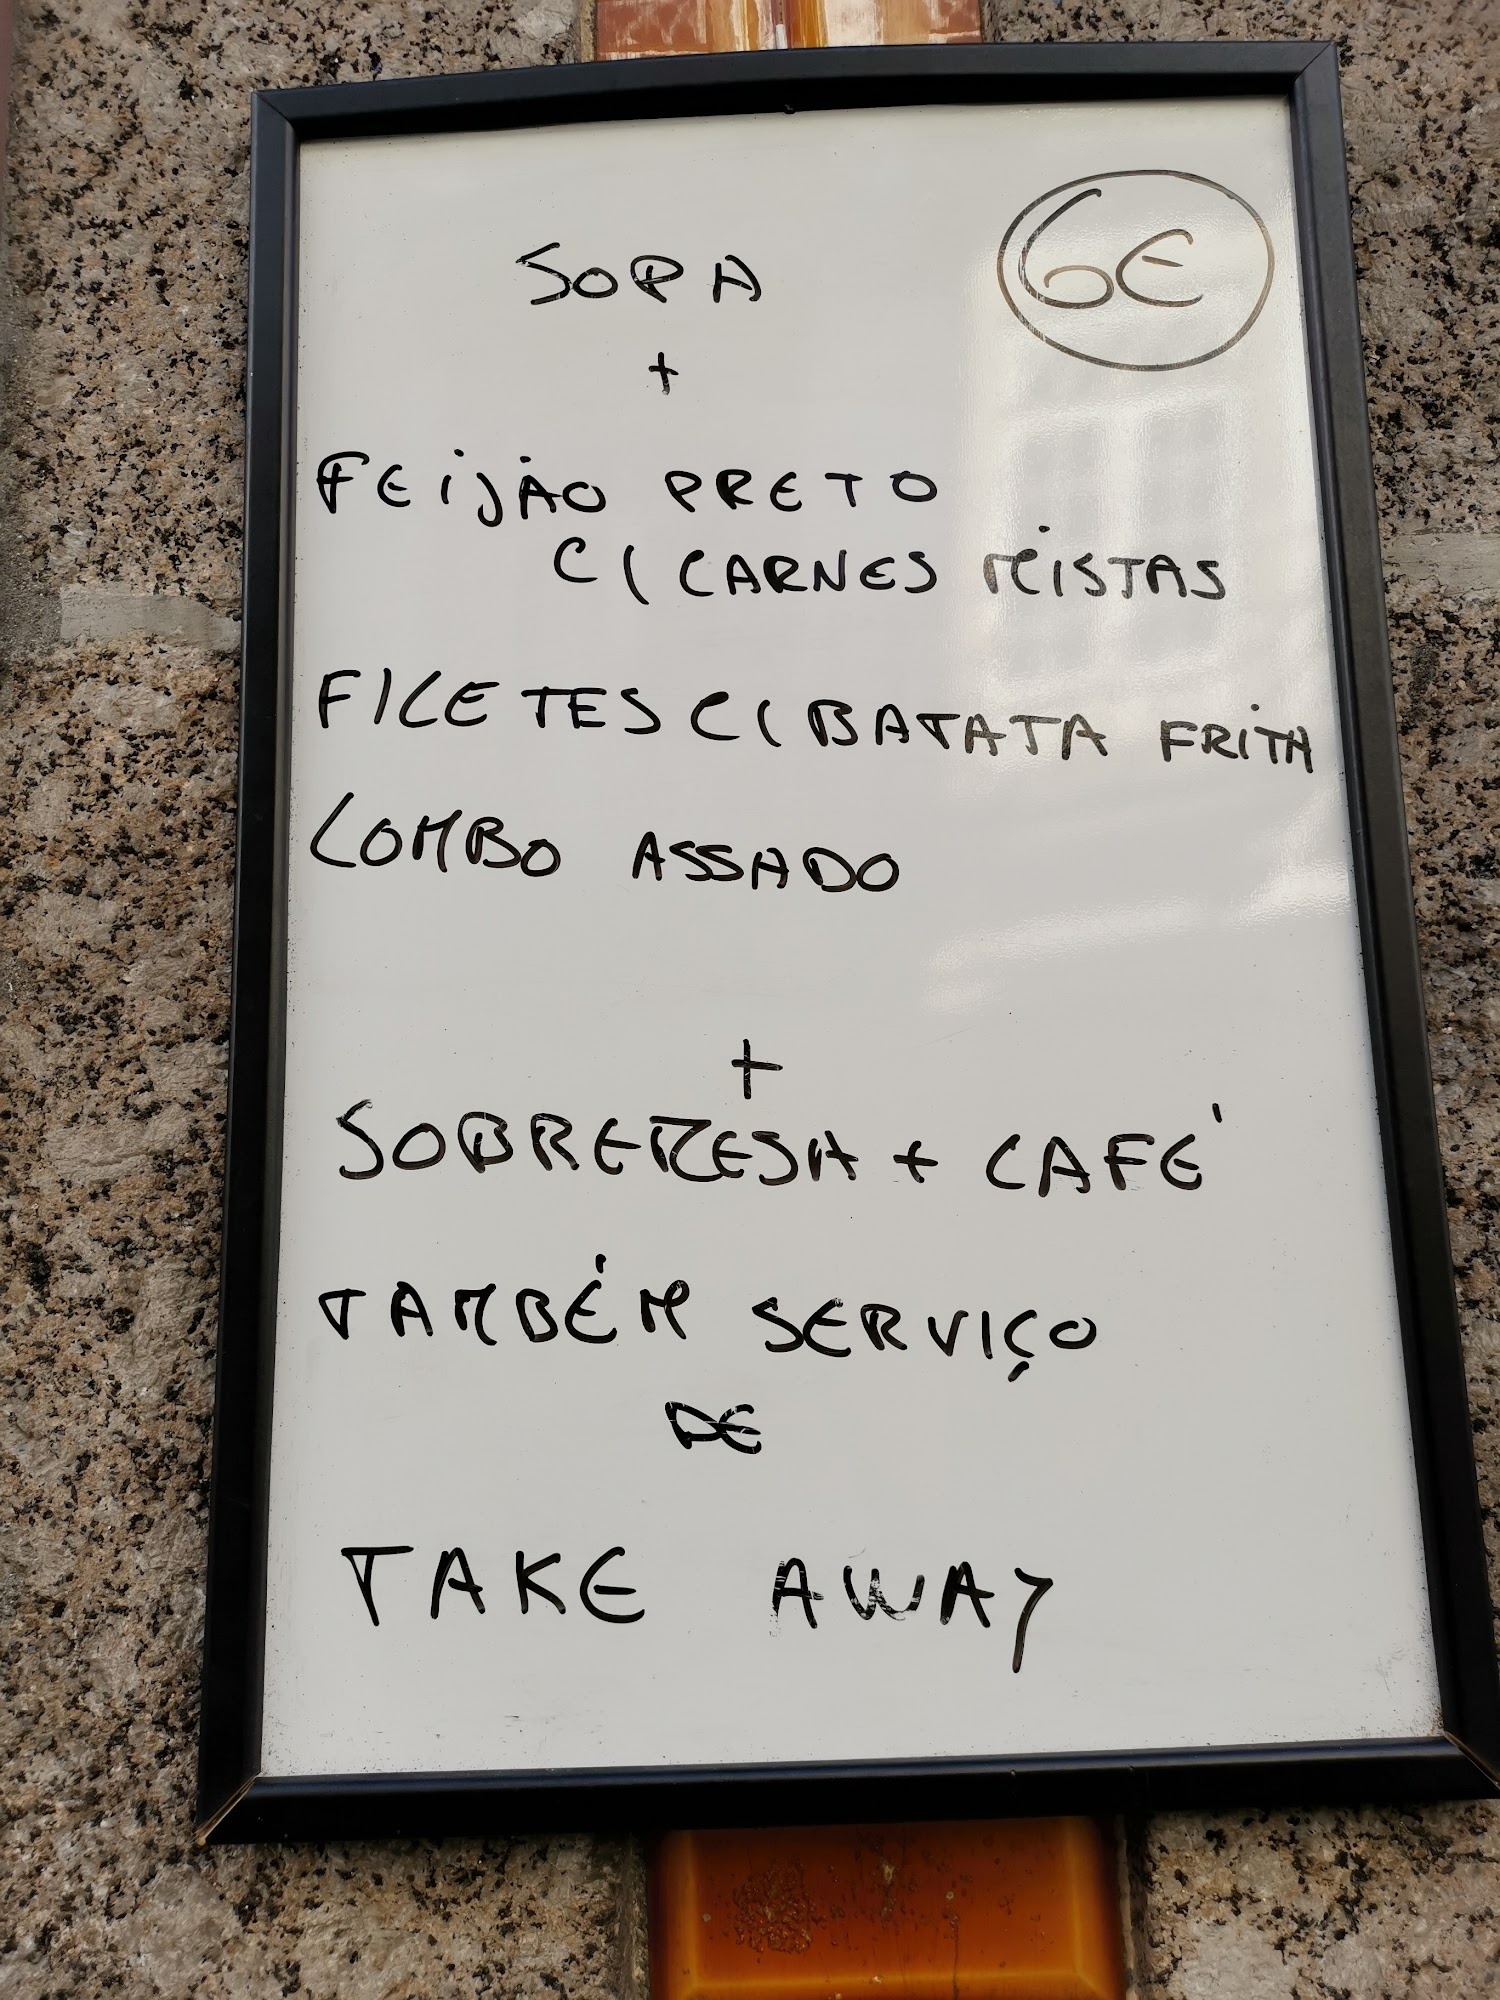 6€
SOPA
+
FEIJÃO PRETO
C/ CARNES MISTAS
FILETES C/ BATATA FRITA
LOMBO ASSADO
+
SOBREMESA + CAFÉ
TAMBÉM SERVIÇO
DE
TAKE AWAY